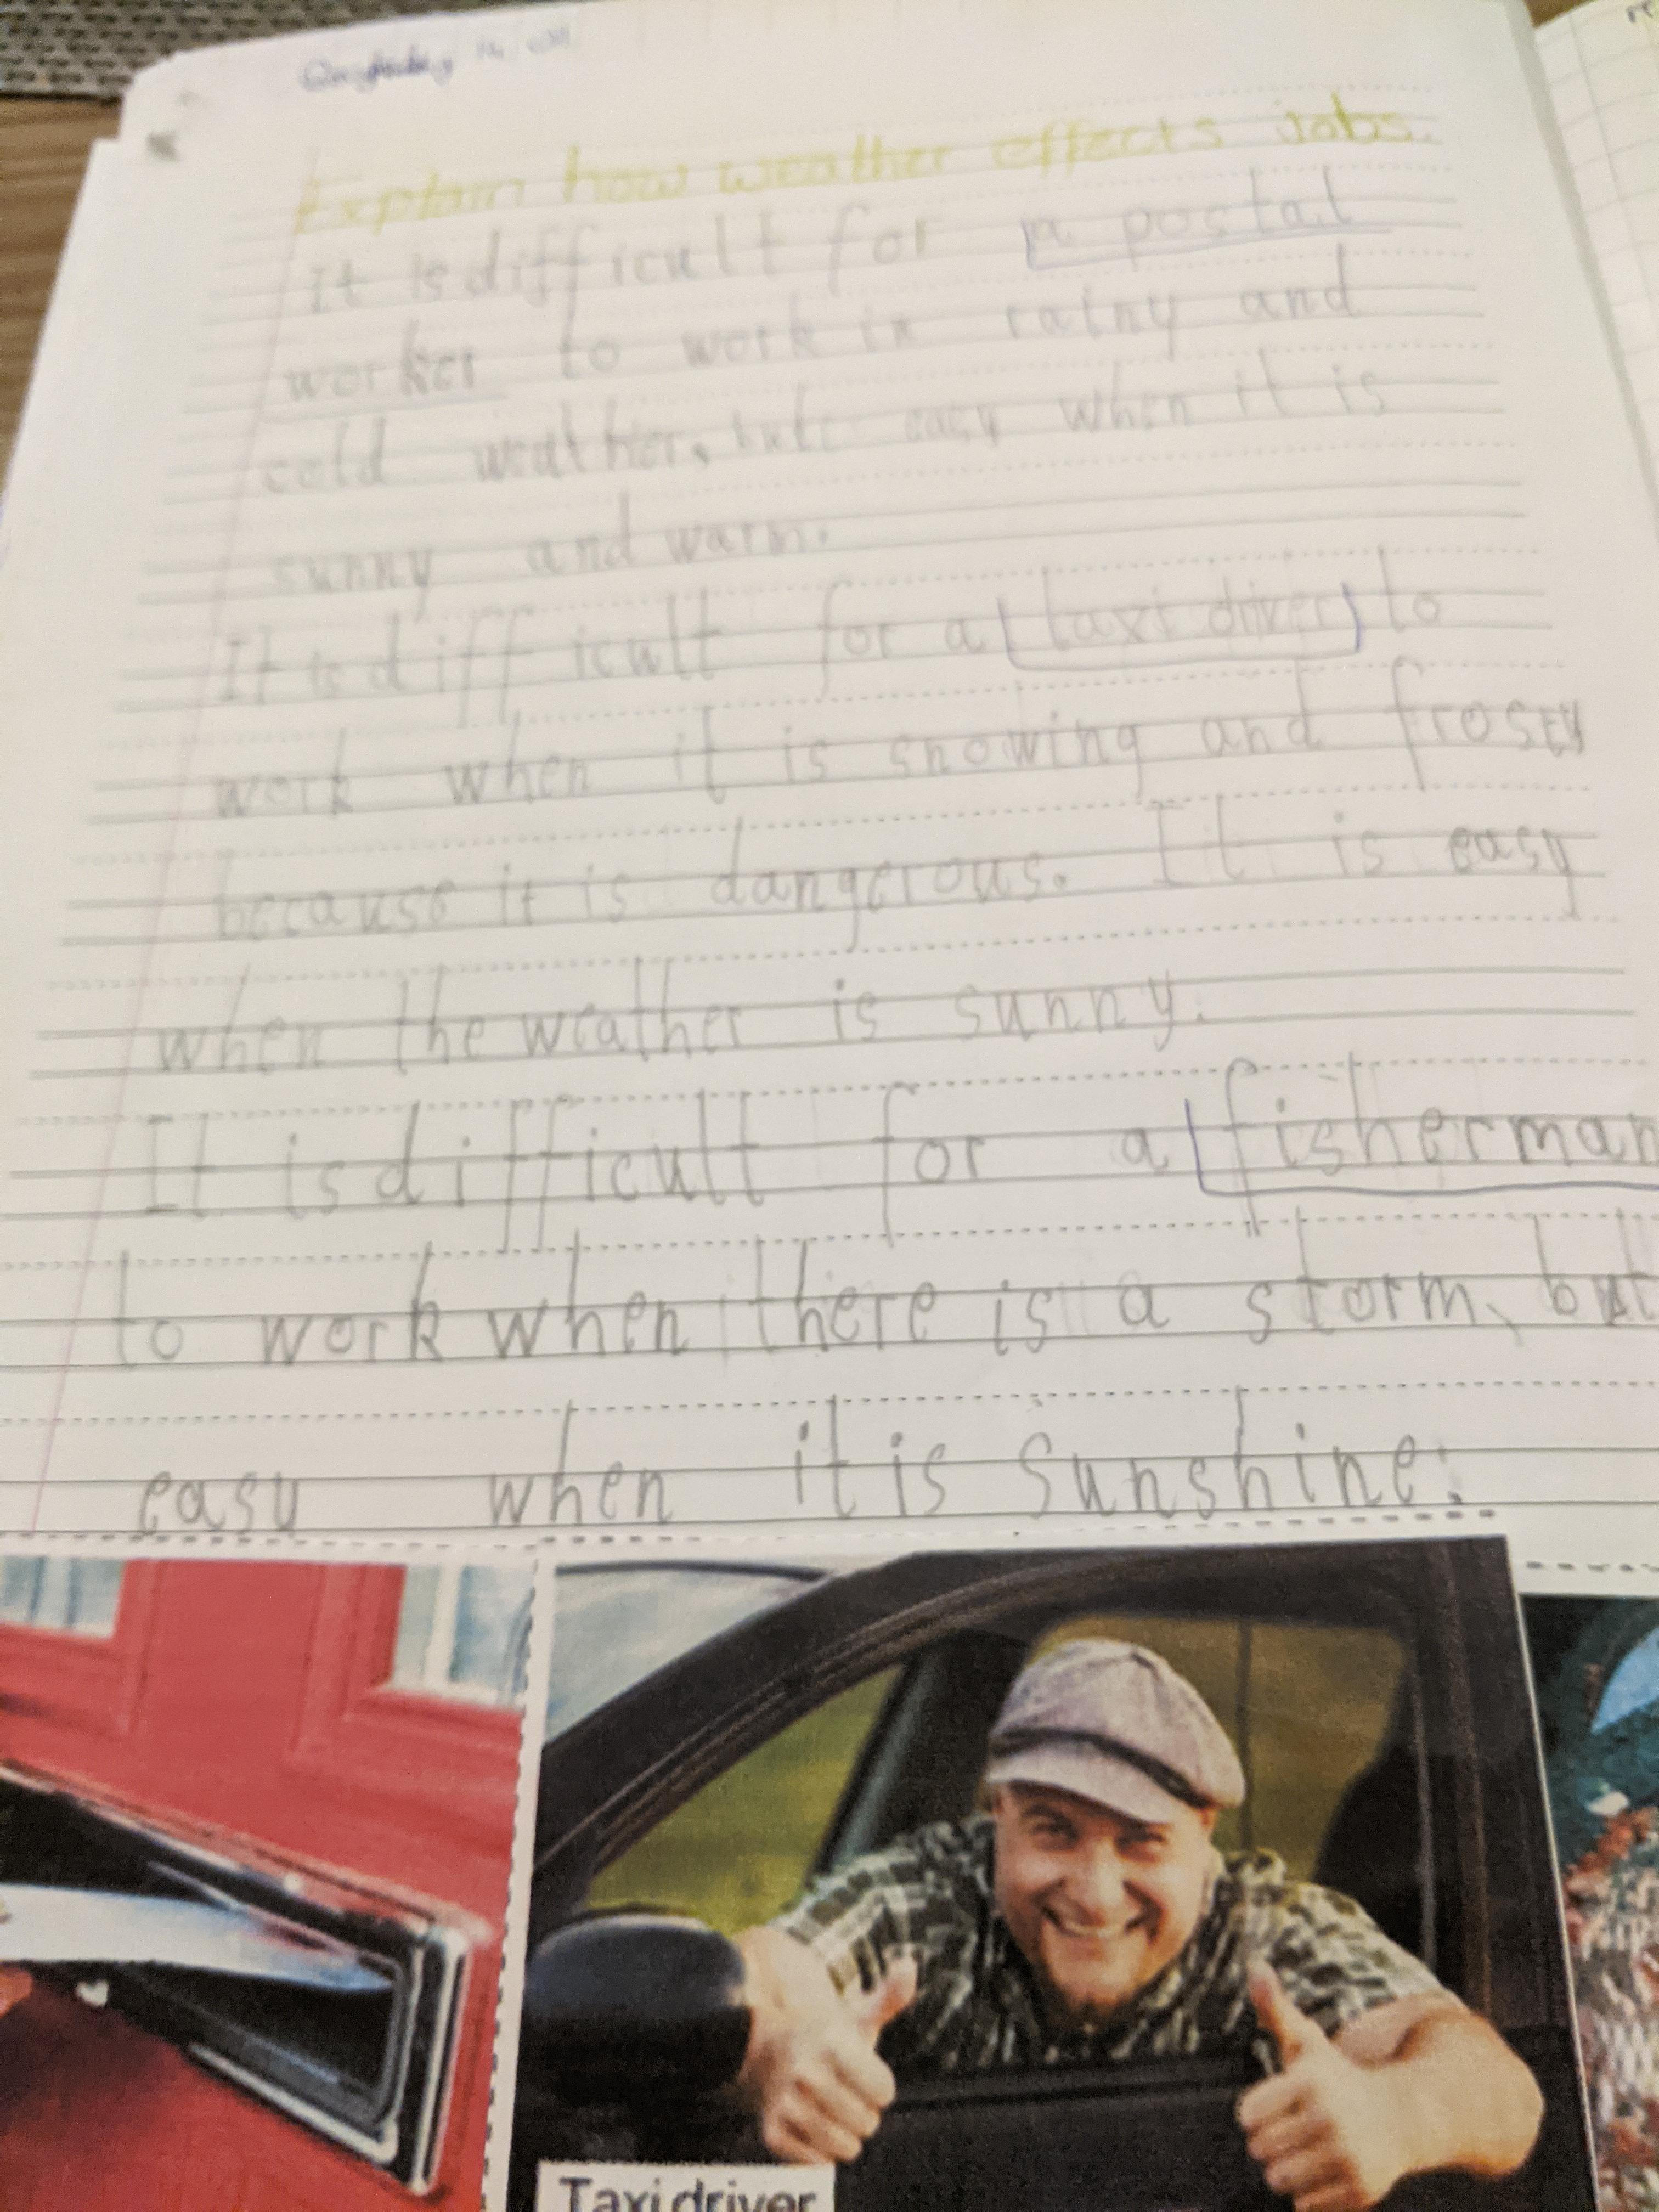 Explain how weather effects jobs.
it is difficult for a postal
worker to work in rainy and
cold weather, but easy when it is
sunny and warm.
It is difficult for a taxi driver to
work when it is snowing and frosty
because it is dangerous. It is easy
when the weather is sunny.
It is difficult for a fisherman
to work when there is a storm, but
easy when it is sunshine.
Taxi driver